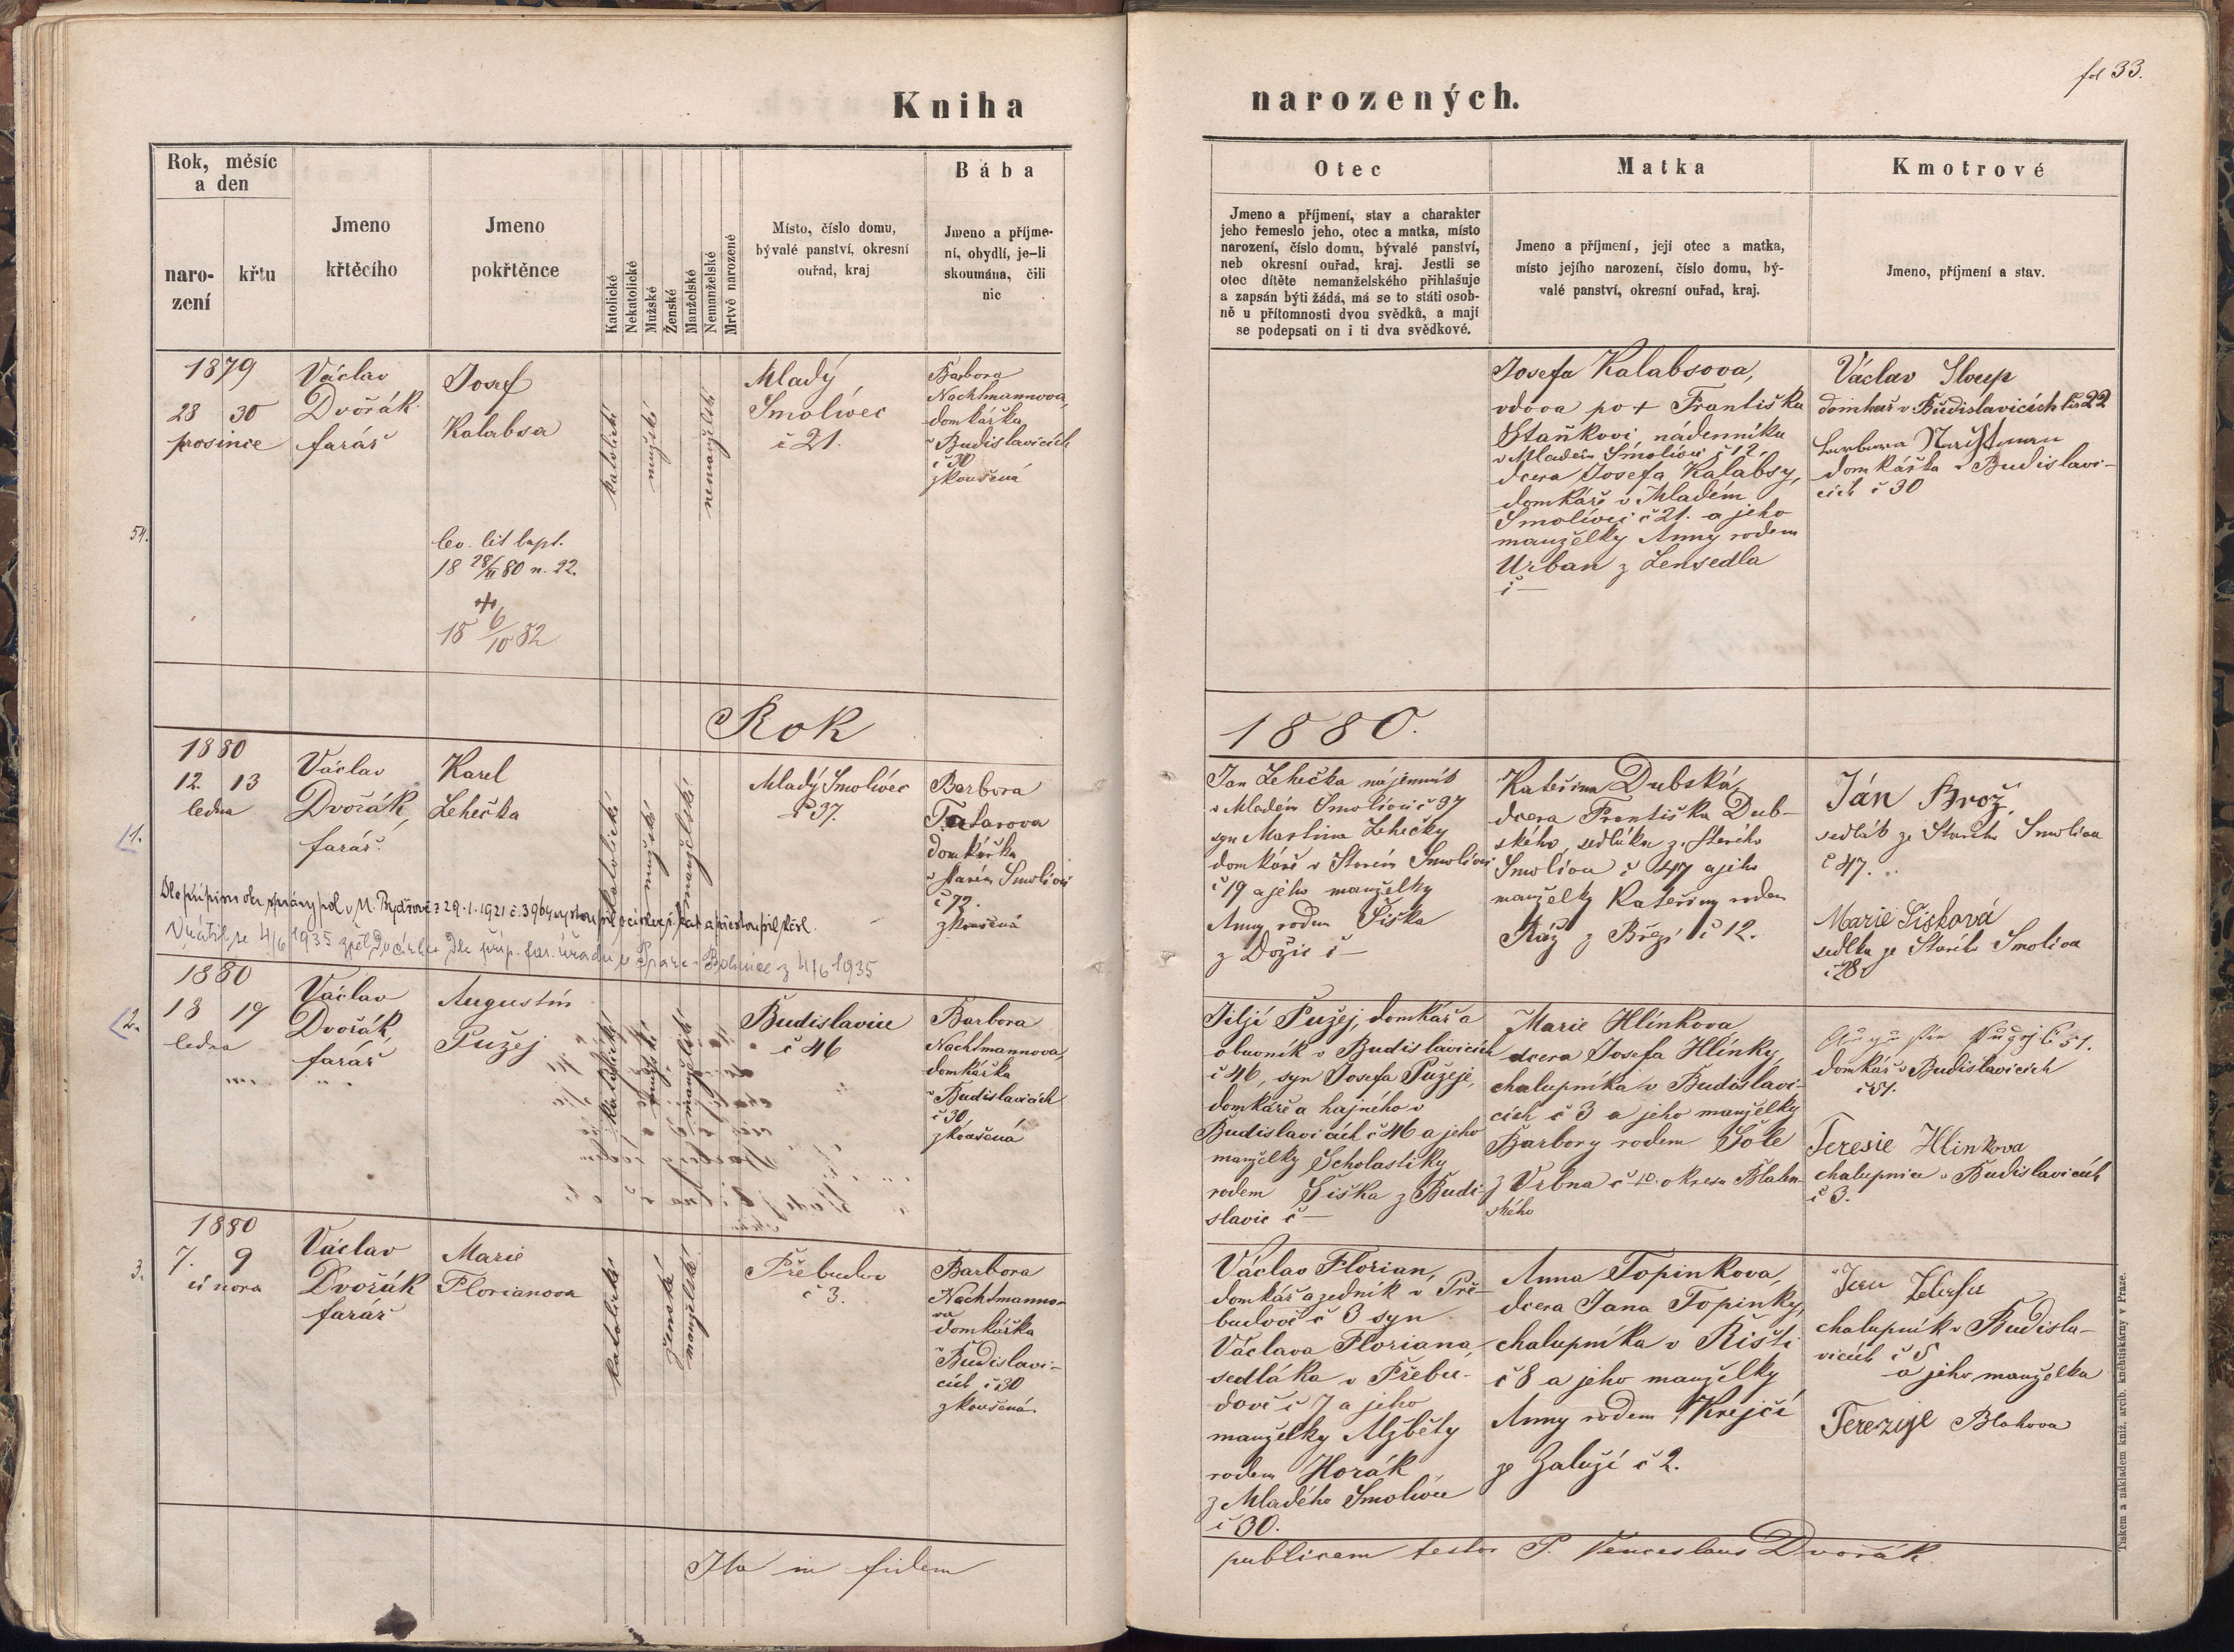 fol 33.
Kniha narozených.
Rok, měsíc
a den
naro-
zení
křtu
Jmeno
křtěcího
Jmeno
pokřtěnce
Katolické
Nekatolické
Mužské
Ženské
Manželské
Nemanželské
Mrtvě narozené
Místo, číslo domu,
bývalé panství, okresní
ouřad, kraj
Bába
Jmeno a příjme-
ní, obydlí, je-li
skoumána, čili
nic
Otec
Jmeno a příjmení, stav a charakter
jeho řemeslo jeho, otec a matka, místo
narození, číslo domu, bývalé panství,
neb okresní ouřad, kraj. Jestli se
otec dítěte nemanželského přihlašuje
a zapsán býti žádá, má se to státi osob-
ně u přítomnosti dvou svědků, a mají
se podepsati on i ti dva svědkové.
Matka
Jmeno a příjmení, její otec a matka,
místo jejího narození, číslo domu, bý-
valé panství, okresní ouřad, kraj.
Kmotrové
Jmeno, příjmení a stav.
54.
1879
28 30
prosince
Václav
Dvořák
farář
Josef
Kalabsa
lit bapt.
18 28/II 80 n. 22.
+
18 6/10 82
katolické
mužské
nemanželské
Mladý
Smolivec
č 21.
Barbora
Nachtmannova,
domkářka
v Budislavicích
č 30
zkoušená
Josefa Kalabsova,
vdova po + Františku
Staňkovi, nádenníku
v Mladém Smolivci č 12,
dcera Josefa Kalabsy,
domkáře v Mladém
Smolivci č 21. a jeho
manželky Anny rodem
Urban z Lensedla
č —
Václav Sloup
domkař v Budislavicích čís 22
Barbara Nachtmann
domkářka v Budislavi-
cích č 30
Rok 1880.
1.
1880
12. 13
ledna
Václav
Dvořák,
farář
Karel
Lehečka
katolické
mužské
manželské
Mladý Smolivec
č 37.
Barbora
Tatarova
domkářka
v Starém Smolivci
č 72.
zkoušená
Jan Lehečka nájemník
v Mladém Smolivci č 37
syn Martina Lehečky
domkáře v Starém Smolivci
č 19 a jeho manželky
Anny rodem Šiška
z Dožic č —
Kateřina Dubská,
dcera Františka Dub-
ského, sedláka ze Starého
Smolivce č 47 a jeho
manželky Kateřiny rodem
Ráž z Březí č 12.
Ján Brož,
sedlák ze Starého Smolivce
č 47.
Marie Šisková
sedlka ze Starého Smolivce
č 28
Dle přípisu okr. správy pol. v N. Bydžově z 29.1.1921 č. 3964 vystoupil z církve ř. kat. a přestoupil
Vrátil se 4/6 1935 zpět do církve dle příp. far. úřadu v Praze-Bohnice z 4/6 1935
2.
1880
18 19
ledna
Václav
Dvořák,
farář
Augustin
Pužej
katolické
mužské
manželské
Budislavice
č 46
Barbora
Nachtmannova,
domkářka
v Budislavicích
č 30,
zkoušená
Jiljí Pužej, domkář a
obuvník v Budislavicích
č 46, syn Josefa Pužeje,
domkáře a hajného v
Budislavicích č 46 a jeho
manželky Scholastiky
rodem Šiška z Budi-
slavic č —
Marie Hlinkova,
dcera Josefa Hlinky,
chalupníka v Budislavi-
cích č 3 a jeho manželky
Barbory rodem Šole
z Vrbna č 10. okresu Blaten-
ského
Augustin Pužej č 51.
domkář v Budislavicích
č 51.
Teresie Hlinkova
chalupnice v Budislavicích
č 3.
3.
1880
7. 9
února
Václav
Dvořák
farář
Marie
Florianova
katolické
ženské
manželské
Přebudov
č 3.
Barbora
Nachtmanno-
va
domkářka
v Budislavi-
cích č 30
zkoušená
Václav Florian,
domkář a zedník v Pře-
budově č 3 syn
Václava Floriana,
sedláka v Přebu-
dově č 7 a jeho
manželky Alžběty
rodem Horák
z Mladého Smolivce
č 30.
Anna Topinkova,
dcera Jana Topinky,
chalupníka v Řišti
č 8 a jeho manželky
Anny rodem Krejčí
ze Zaluží č 2.
Jan
chalupník v Budisla-
vicích č 5
a jeho manželka
Terezije Blahova
Ita in fidem publicam testor P. Venceslaus Dvořák
Tiskem a nákladem kníž. arcib. knihtiskárny v Praze.